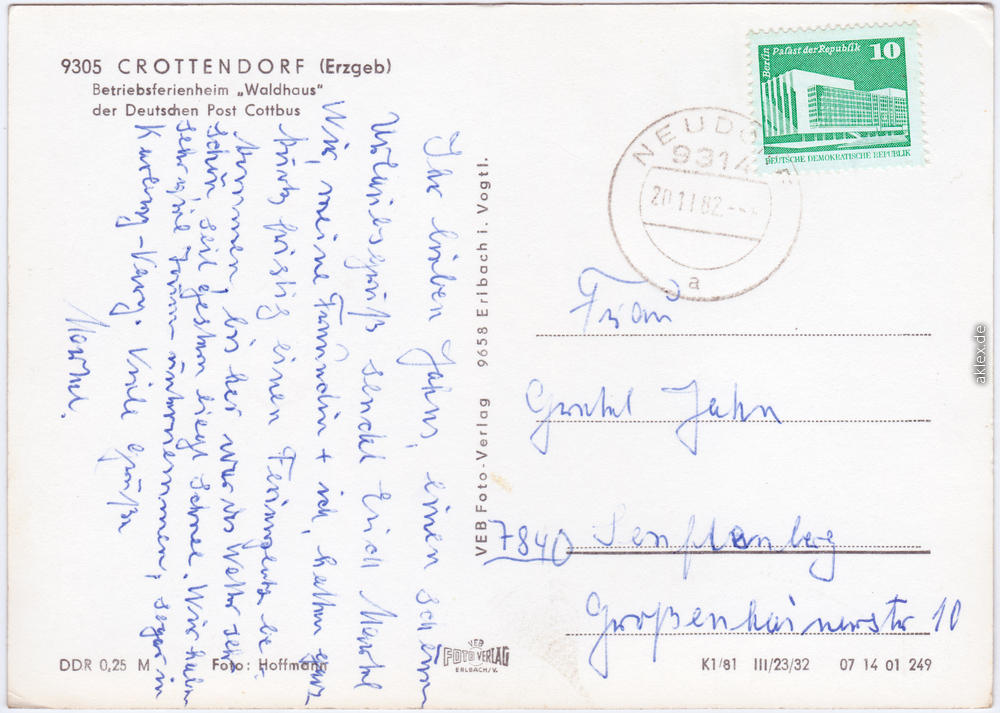 9305 CROTTENDORF (Erzgeb)
Betriebsferienheim „Waldhaus"
der Deutschen Post Cottbus
Ihr lieben Jahns, einen schönen
Urlaubsgruß sendet Euch Marthel
Wir, meine Freundin + ich, hatten ganz
kurz fristig einen Ferienplatz be-
kommen, bis her war das Wetter sehr
schön, seit gestern liegt Schnee. Wir haben
sehr viel unternommen, sogar in
Karlovy-Vary. Viele Grüße
Marthel.
VEB Foto-Verlag 9658 Erlbach i. Vogtl.
Berlin Palast der Republik 10
DEUTSCHE DEMOKRATISCHE REPUBLIK
9314
20.11.82
a
Frau
Gretel Jahn
7840 Senftenberg
Großenhainerstr 10
DDR 0,25 M
Foto: Hoffmann
VEB
FOTO VERLAG
ERLBACH/V.
K1/81 III/23/32 07 14 01 249
aklex.de